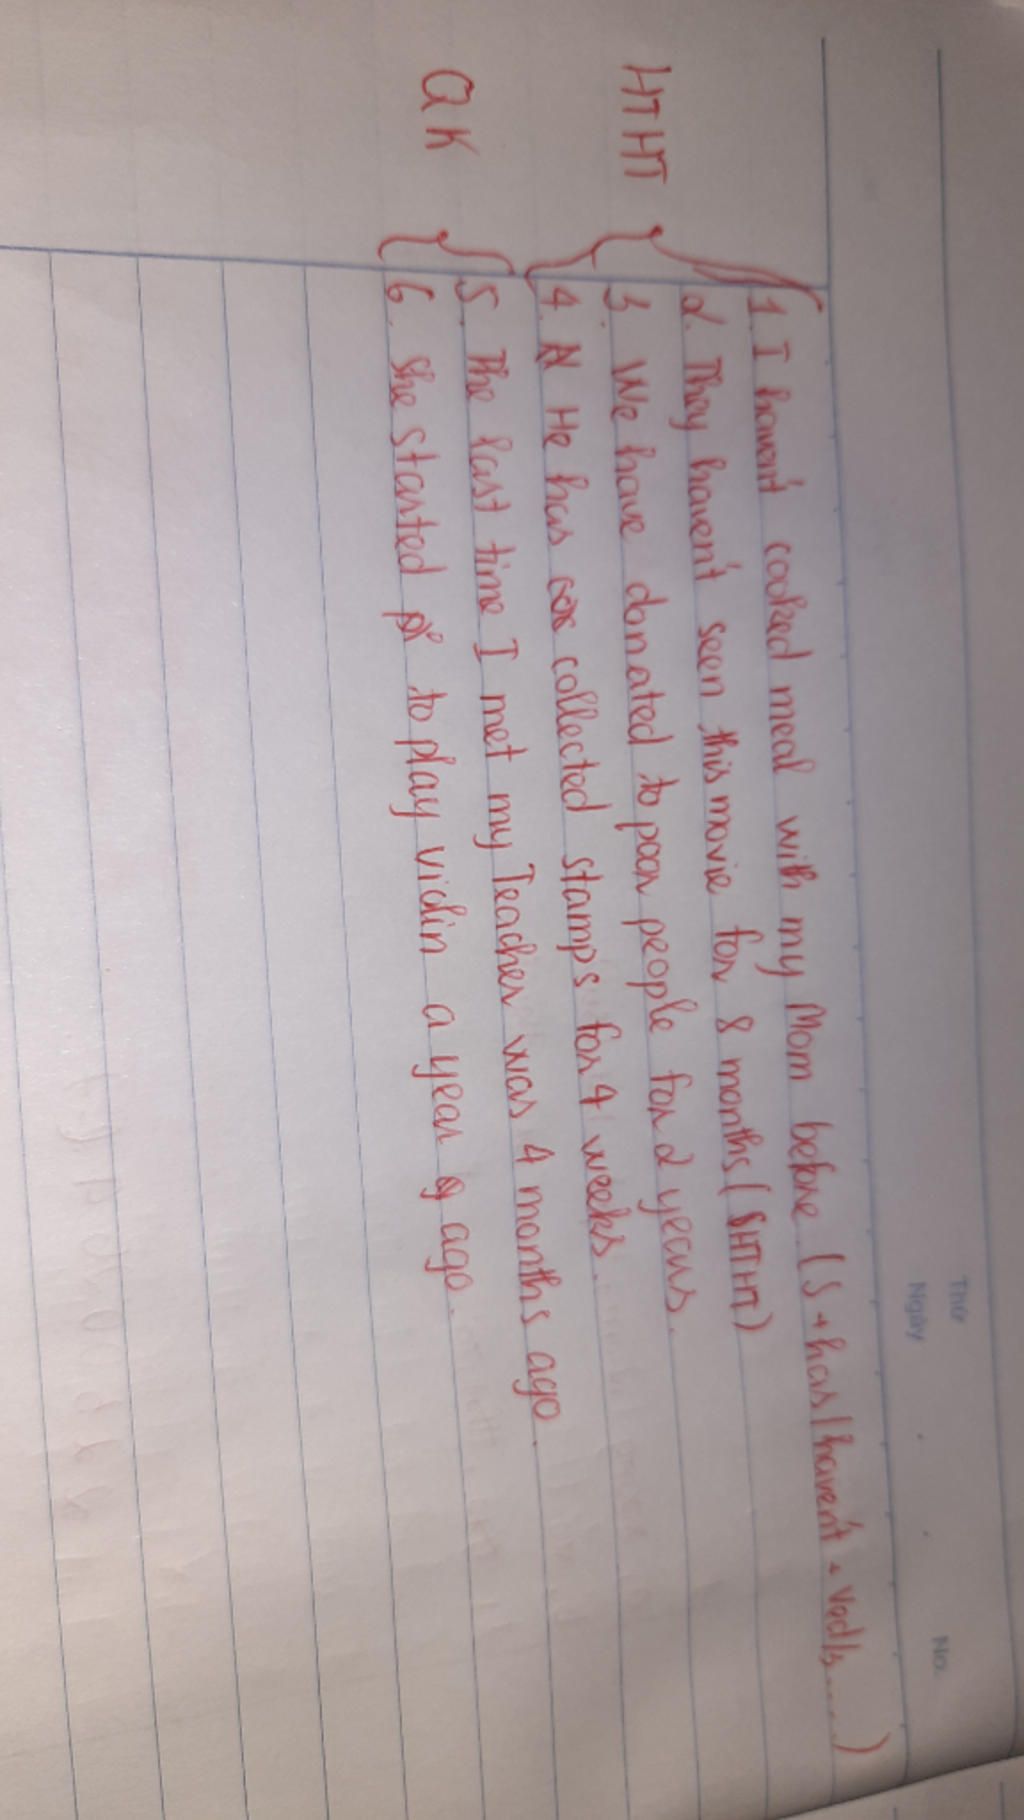 Thứ
Ngày
No.
1. I haven't cooked meal with my Mom before. (S + has/haven't + Ved/3.....)
2. They haven't seen this movie for 8 months (HTHT)
HTHT
3. We have donated to poor people for 2 years.
4. He has collected stamps for 4 weeks.
QK
5. The last time I met my Teacher was 4 months ago.
6. She started to play violin a year ago.